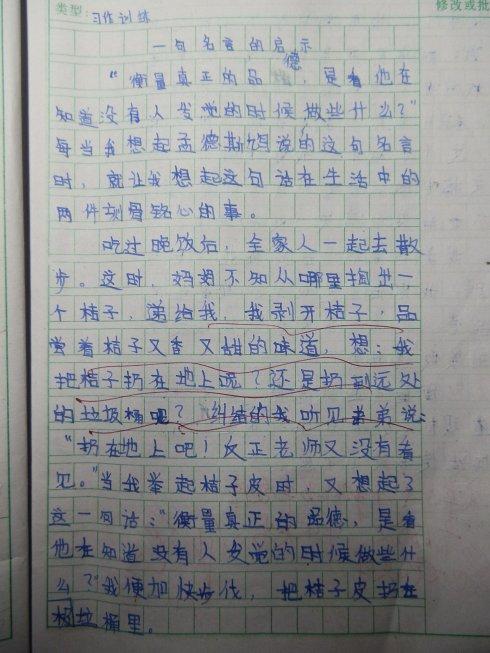 类型: 习作训练
修改或批
一句名言的启示
“衡量真正的品德，是看他在
知道没有人发觉的时候做些什么?”
每当我想起孟德斯鸠说的这句名言
时，就让我想起这句话在生活中的
两件刻骨铭心的事。
吃过晚饭后，全家人一起去散
步。这时，妈妈不知从哪里掏出一
个桔子，递给我，我剥开桔子，品
尝着桔子又香又甜的味道，想：我
把桔子扔在地上呢？还是扔到远处
的垃圾桶呢？纠结的我听见弟弟说：
“扔在地上吧！反正老师又没有看
见。”当我举起桔子皮时，又想起了
这一句话：“衡量真正的品德，是看
他在知道没有人发觉的时候做些什
么？”我便加快步伐，把桔子皮扔在
垃圾桶里。